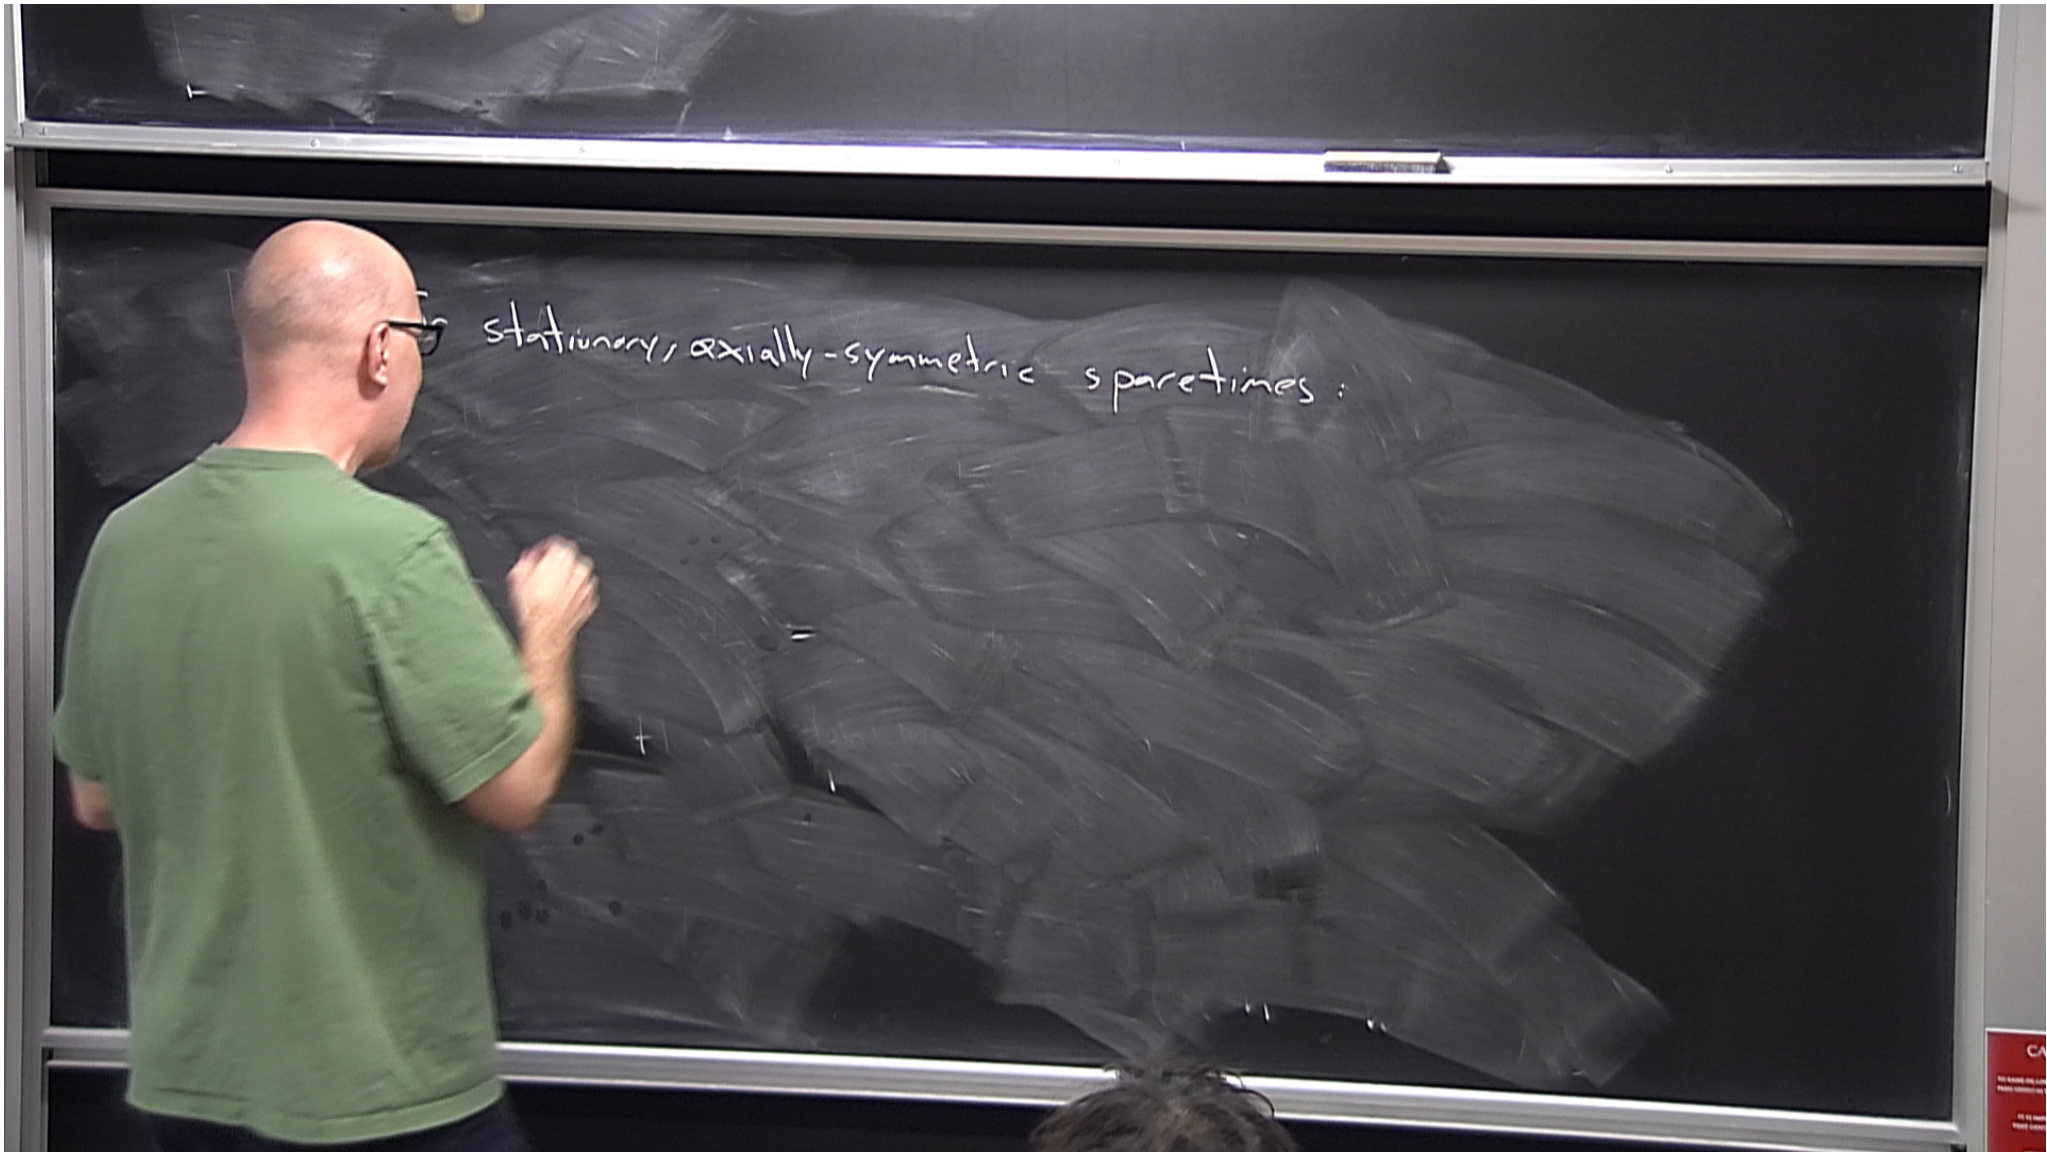 stationary, axially-symmetric spacetimes:
CA